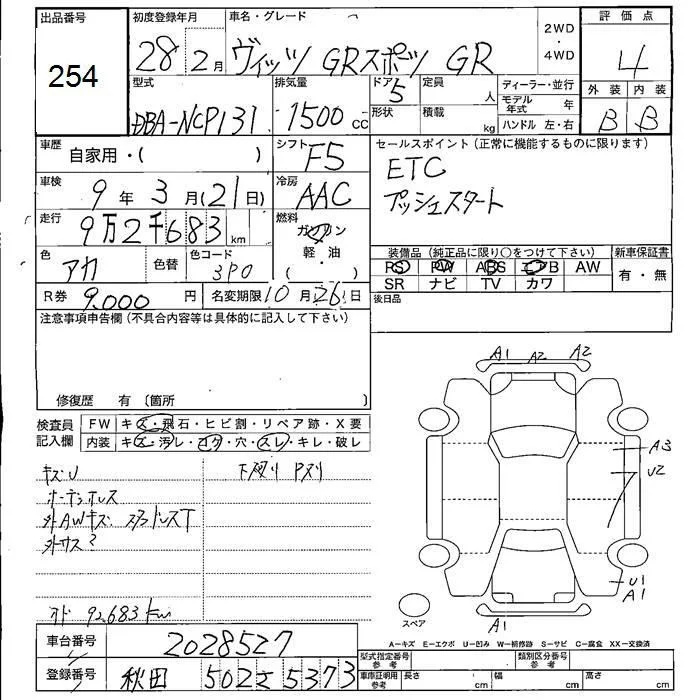 出品番号 初度登録年月 車名・グレード 2WD ・ 4WD 評価点
254 28年 2月 ヴィッツ GRスポーツ GR 4
型式 排気量 ドア 定員 ディーラー・並行 外装 内装
DBA-NCP131 1500cc 5 人 モデル年式 年 B B
形状 積載 kg ハンドル 左・右
車歴 自家用・( ) シフト F5 セールスポイント (正常に機能するものに限ります)
車検 9年 3月(21日) 冷房 AAC ETC
プッシュスタート
走行 9万2千683km 燃料 ガソリン 軽・油 ( )
色 アカ 色替 色コード 3P0
装備品 (純正品に限り○をつけて下さい) 新車保証書
PS PW ABS エアB AW 有・無
SR ナビ TV カワ
R券 9,000円 名変期限 10月26日 後日品
注意事項申告欄(不具合内容等は具体的に記入して下さい)
修復歴 有 〔箇所 〕
検査員記入欄 FW キズ・飛石・ヒビ割・リペア跡・X要
内装 キズ・汚レ・コゲ・穴・スレ・キレ・破レ
キズU 下廻リ Pスリ
外AWキズ スタッドレスT
外サス?
オド 92,683km
A1 A2 A2
A3
U2
U1
A1
A1
スペア
A−キズ E−エクボ U−凹み W−補修跡 S−サビ C−腐食 XX−交換済
車台番号 2028527 型式指定番号 参考 類別区分番号 参考
登録番号 秋田 502 さ 5373 車庫証明用 参考 長さ cm 幅 cm 高さ cm